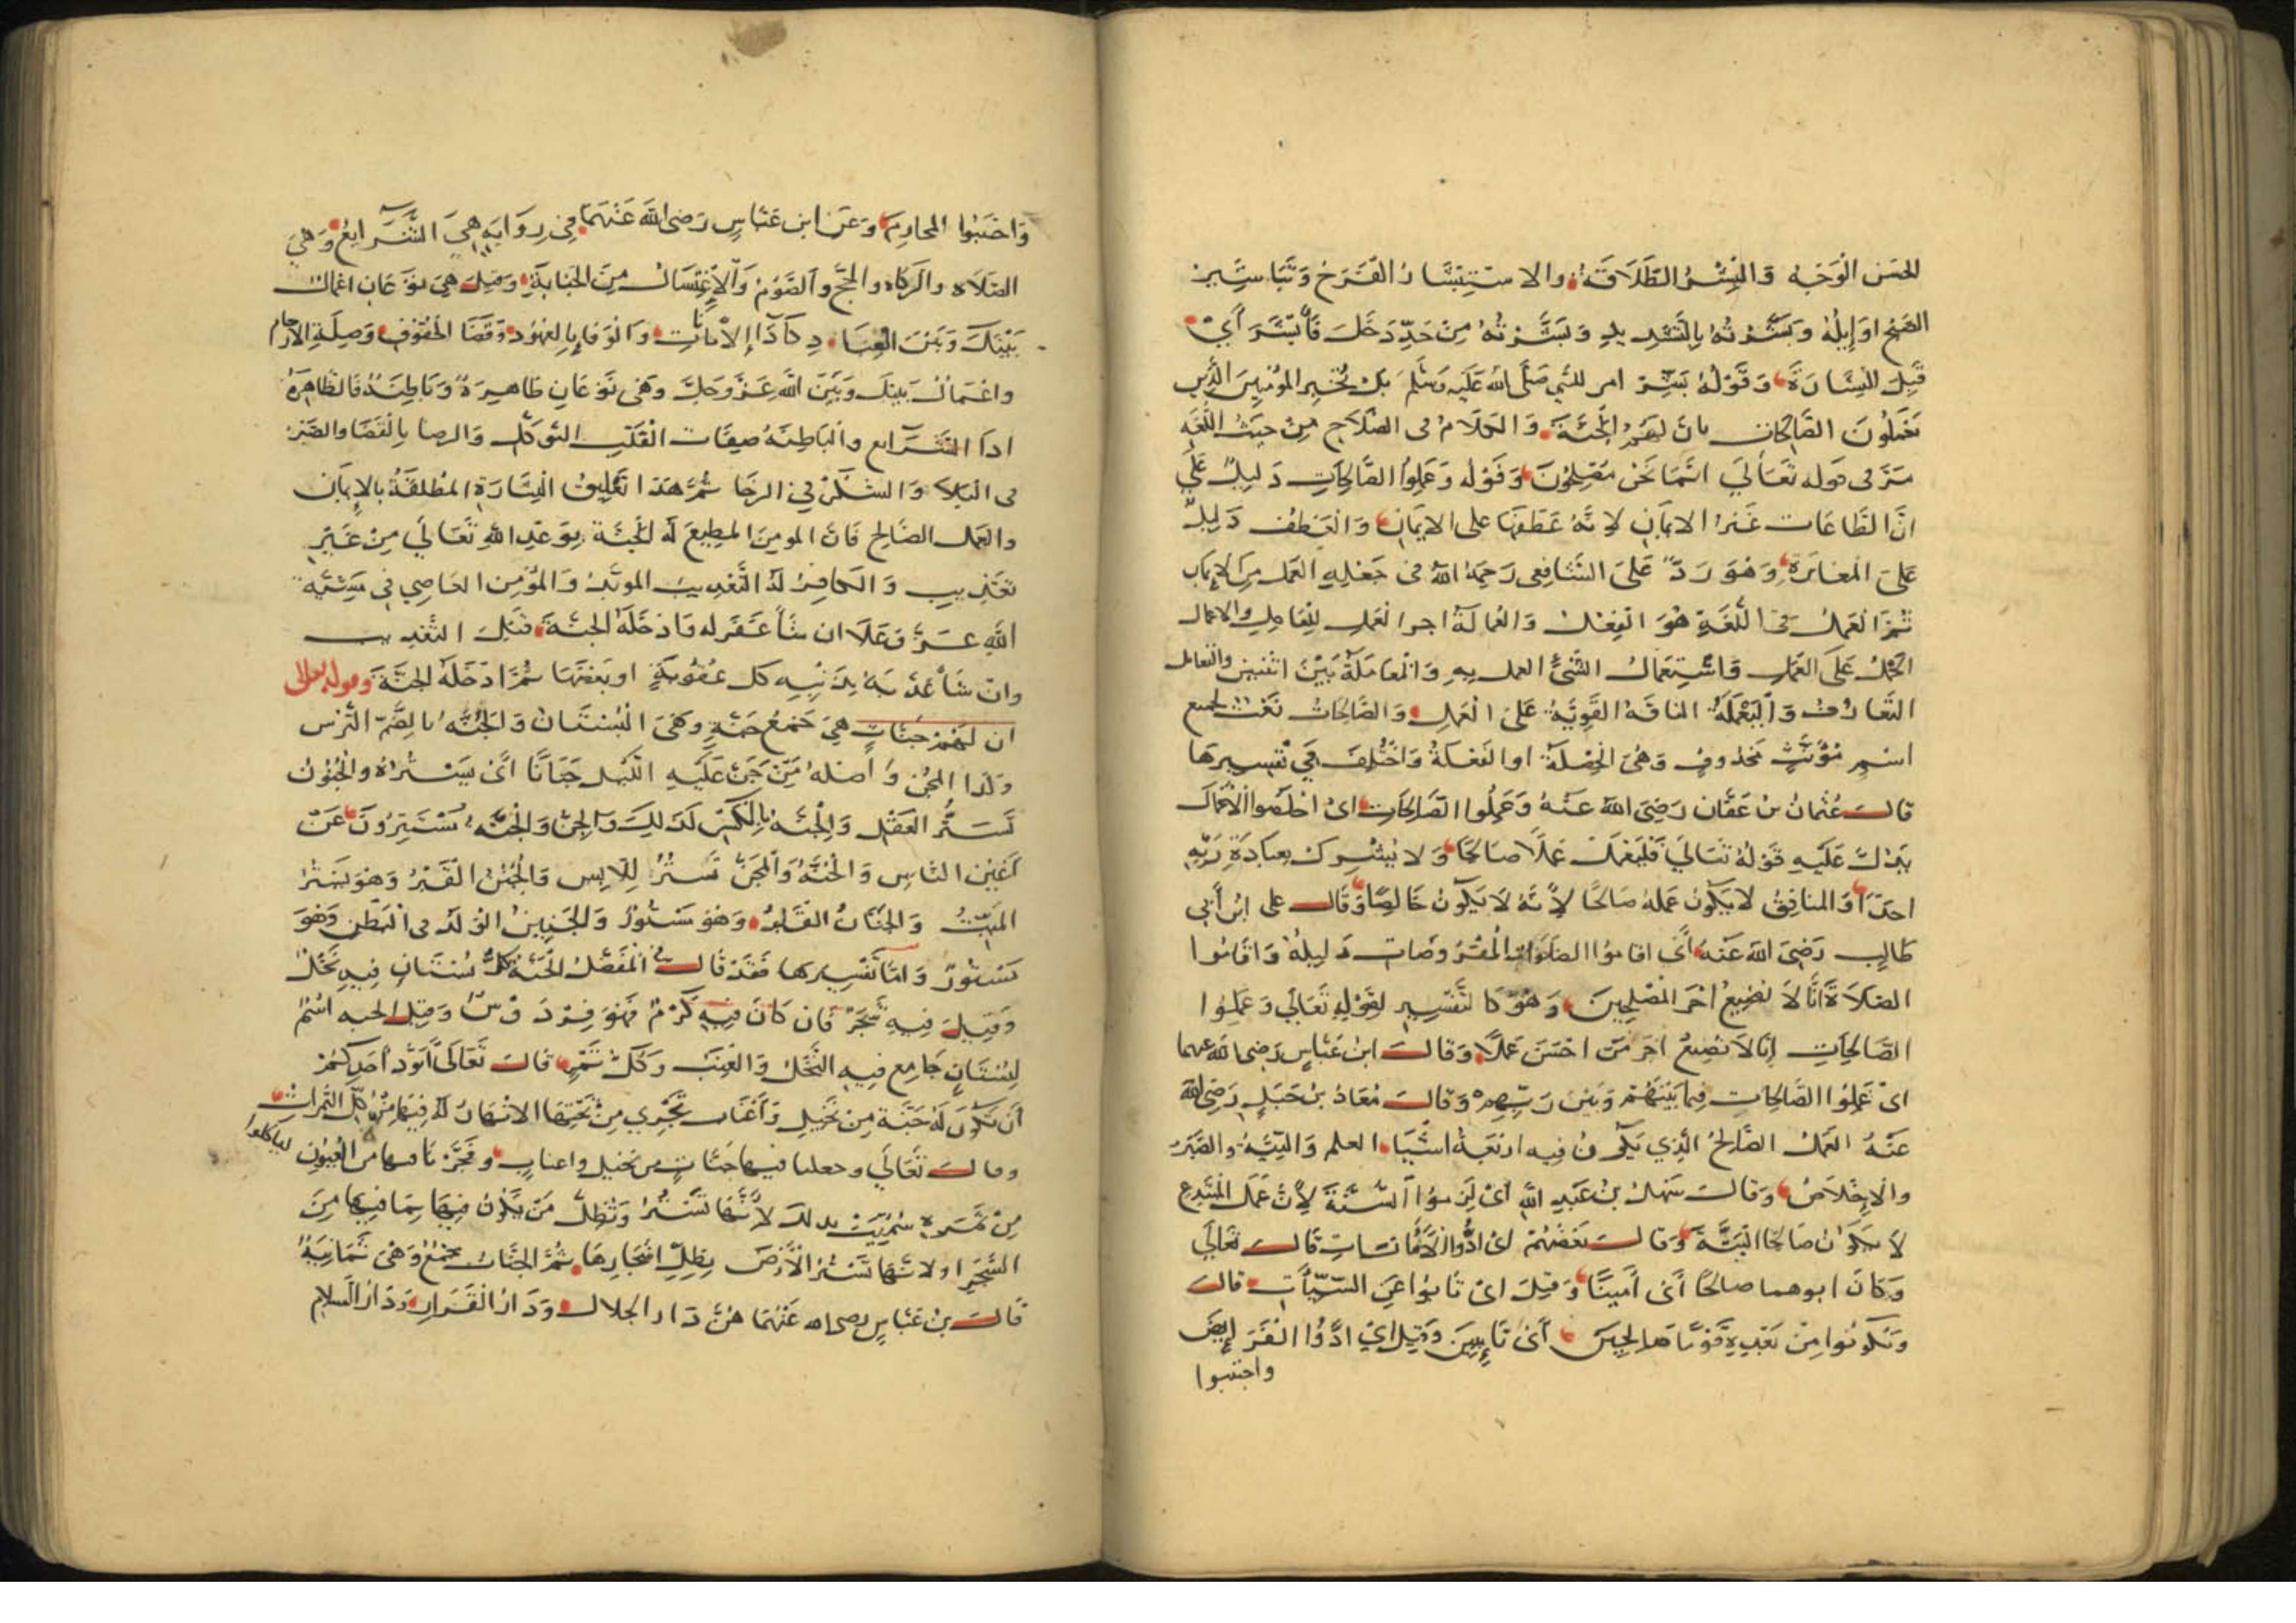 الحسن الوَجْه وَالبِشْرُ الطَّلَاقَةُ والاسْتِبْشَارُ الْفَرَحُ وَتَبَاشِيرُ
الصُّبْحِ اوَايِلُهُ وَبَشَّرْتُهُ بِالتَّشْدِيدِ وَبَشَرْتُهُ مِنْ حَدِّ دَخَلَ فَأَبْشَرَ أَيْ
قَبِلَ البِشَارَةَ وَقَوْلُهُ بَشِّرْ امر للنبي صَلَّى اللَّه عَلَيْه وَسَلَّمَ بان يُخْبِرَ المؤمِنِينَ الَّذِين
يَعْمَلُونَ الصَّالِحَاتِ بانَّ لَهُمْ الْجَنَّةَ وَالكَلَامُ فى الصَّلَاحِ مِنْ حَيْثُ اللُّغَة
مَرَّ فى قوله تَعَالَي انَّمَا نَحْنُ مُصْلِحُونَ وَقَوْله وَعَمِلُوا الصَّالِحَاتِ دَلِيلٌ عَلَي
انَّ الطَّاعَات غَيْرُ الايمَانِ لِانَّهُ عَطَفَهَا على الايمَانِ وَالْعَطْف دَلِيلٌ
عَلَى الْمُغَايَرَةِ وَهُوَ رَدٌّ عَلَى الشَّافِعِى رَحِمَهُ اللَّهُ فى جَعْلِهِ العَمَلَ مِنَ الإيمَانِ
ثُمَّ الْعَمَلُ فى اللُّغَةِ هُوَ الْفِعْلُ وَالعُمَالَةُ اجرُ الْعَمَلِ لِلْعَامِلِ والاعمال
الحَمْلُ عَلَى العَمَلِ وَاسْتِعْمَالُ الشَّىْءِ العمل بِهِ وَالْمُعَامَلَةُ بَيْنَ اثْنَيْنِ والتعامل
التَّعَارُفُ وَالْيَعْمَلَةُ الناقَةُ القَوِيَّةُ عَلَى الْعَمَلِ وَالصَّالِحَاتُ نَعْتٌ لجمع
اسْمٍ مُؤَنَّثٍ مَحْذُوفٍ وَهْىَ الْخِصْلَةُ اوِ الفَعْلَةُ وَاخْتُلِفَ فى تَفْسِيرِهَا
قالَ عُثْمانُ بنُ عَفَّان رَضِىَ اللَّه عَنْهُ وَعَمِلُوا الصَّالِحَاتِ اىْ اخْلَصُوا الْاعْمَالَ
يَدُلُّ عَلَيْهِ قَوْلُهُ تَعَالَي فَلْيَعْمَلْ عَمَلًا صَالِحًا وَلا يُشْرِكْ بِعِبَادَةِ رَبِّهِ
احَدًا وَالمنافِقُ لا يَكُونُ عَمَلُهُ صَالحًا لِانَّهُ لَا يَكُونُ خَالِصًا وَقَالَ على ابْنُ أَبِي
طَالِبٍ رَضِىَ اللَّه عَنْهُ أَيْ اقامُوا الصَّلَوَاتِ الْمَفْرُوضَاتِ دَلِيلُهُ وَاقَامُوا
الصَّلَاةَ انَّا لَا نُضِيعُ اجْرَ المُصْلِحِينَ وَهُوَ كَالتَّفْسِيرِ لِقَوْلِهِ تَعَالَي وَعَمِلُوا
الصَّالِحَاتِ إنّا لَا نُضِيعُ اجْرَ مَنْ احْسَنَ عَمَلًا وَقَالَ ابْنُ عَبَّاسٍ رَضِى اللّه عنهما
اىْ عَمِلُوا الصَّالِحَاتِ فِيمَا بَيْنَهُمْ وَبَيْنَ رَبِّهِمْ وَقَالَ مُعَاذُ بْنُ جَبَلٍ رَضِىَ اللَّه
عَنْهُ العَمَلُ الصَّالِحُ الَّذِي يَكُونُ فِيهِ ارْبَعَةُ اشْيَاءَ العلم وَالنِّيَّةُ والصَّبْرُ
والاخِلَاصُ وَقَالَ سَهْلُ بْنُ عَبْدِ اللَّهِ أىْ لَزِمُوا السُّنَّةَ لِانَّ عَمَلَ المُبْتَدِعِ
لَا يَكُونُ صَالِحًا البَتَّةَ وَقَالَ بَعْضُهُمْ اىْ ادُّوا الْامَانَاتِ قَالَ تَعَالَي
وَكَانَ ابوهما صالحًا أىْ أَمِينًا وَقِيلَ اىْ تَابُوا عَنِ السَّيِّآتِ قَالَ
وَتَكُونُوا مِنْ بَعْدِهِ قَوْمًا صَالِحِينَ أَىْ تَايِبِينَ وَقِيلَ اىْ ادَّوُا الْفَرَايِضَ
واجتنبوا
وَاجْتَنَبُوا المحَارِمَ وَعَنِ ابن عَبَّاسٍ رَضِى اللَّه عَنْهُمَا فِى رِوَايَةٍ هِىَ الشَّرَايِعُ وَهِىَ
الصَّلَاه والزكَاه والحَجُّ وَالصَّوْمُ وَالاِغْتِسَالُ مِنَ الجَنَابَةِ وَقِيلَ هِىَ نَوْعَانِ اعْمَالٌ
بَيْنَكَ وَبَيْنَ العِبَادِ كَأَدَاءِ الْامَانَاتِ وَالْوَفَاءِ بِالعُهُودِ وَقَضَا الحُقُوقِ وَصِلَةِ الارحام
واعْمَالٌ بَيْنَكَ وَبَيْنَ اللَّهِ عَزَّ وَجَلَّ وَهْىَ نَوْعَانِ ظَاهِرَةٌ وَبَاطِنَةٌ فَالظَّاهِرَةُ
ادَا الشَّرَايع والبَاطِنَةُ صِفَاتُ الْقَلْبِ التَّوَكُّل وَالرضا بِالْقَضَا والصَّبْرُ
فى البَلَاءِ وَالشُّكْرُ فِى الرخَا ثُمَّ هَذَا تَعْلِيقُ الْبِشَارَةِ المُطْلَقَةِ بالإيمَان
والعَمَلِ الصَّالِحِ فَانَّ المومِنَ المطِيعَ لَهُ الْجَنَّة بِوَعْدِ اللَّهِ تَعَالَي مِنْ غَيْرِ
تَعْذِيبٍ وَالكَافِرُ لَهُ التَّعْذِيبُ الموَبَّدُ وَالمُؤْمِنُ العَاصِي فِى مَشِيَّةِ
اللَّهِ عَزَّ وَعَلَا ان شَاءَ غَفَرَ لَه وَادْخَلَهُ الجَنَّةَ قَبْلَ التَّعْذِيبِ
وانْ شَاءَ عَذَّبَهُ بِذَنْبِهِ كُلَّ عُقُوبَتِهِ او بَعْضَهَا ثُمَّ ادْخَلَهُ الجَنَّةَ وقوله تعالى
ان لَهُمْ جَنَّاتٍ هِىَ جَمْعُ جَنَّةٍ وَهْىَ الْبُسْتَانُ وَالجُنَّةُ بِالضَّمِّ التُّرْس
وَكَذَا المِجَنُّ وَاصْلُهُ مِنْ جَنَّ عَلَيْهِ اللَّيْل جَنَانًا أىْ سَتَرَهُ والجُنُونُ
تَسَتُّرُ العَقْلِ وَالجِنَّةُ بِالْكَسْرِ كَذَلِكَ وَالْجِنُّ وَالْجِنَّةُ يَسْتَتِرُونَ عَنْ
أَعْيُنِ النَّاسِ وَالجُنَّةُ وَالمِجَنُّ تَسَتُّرُ اللّابِسِ وَالْجَنَنُ القَبْرُ وَهُوَ يَسْتُرُ
المَيِّتَ وَالجَنَانُ القَلْبُ وَهُوَ مَسْتُورٌ وَالجَنِينُ الْوَلَدُ فى الْبَطْنِ وَهُوَ
مَسْتُورٌ وَامَّا تَفْسِيرها فَقَدْ قَالَ المُفَضَّلُ الْجَنَّةُ كُلُّ بُسْتَانٍ فِيهِ نَخْلٌ
وَقِيلَ فِيهِ شَجَرٌ فَان كَانَ فِيهِ كَرْمٌ فَهُوَ فِرْدَوْسٌ وَقِيلَ الجنه اسْمٌ
لِبُسْتَانٍ جَامِعٍ فِيهِ النَّخْلُ وَالعِنَبُ وَكُلُّ ثَمَرٍ قَالَ تَعَالَى أيَوَدُّ أَحَدُكُمْ
أَنْ تَكُونَ لَهُ جَنَّة مِنْ نَخِيلٍ وَأَعْنَابٍ تَجْرِي مِنْ تَحْتِهَا الانْهَارُ لَهُ فِيهَا مِنْ كُلِّ الثَّمَرَاتِ
وقالَ تَعَالَي وجعلنا فيها جَنَّاتٍ مِن نخيل واعنابٍ وَفَجَّرْنَا فيها من العُيُونِ ليأكلوا
مِنْ ثَمَرِهِ سُمِّيَتْ بذلك لِأَنَّهَا تَسْتُرُ وَتُظِلُّ مَنْ يَكُونُ فِيهَا بِمَا فِيهَا مِنَ
الشَّجَرِ اولانَّهَا تَسْتُرُ الْأَرْضَ بِظِلِّ اشْجَارِهَا ثُمَّ الجَنَّاتُ جَمْعٌ وَهْىَ ثَمَانِيَةٌ
قَالَ بنُ عَبَّاسٍ رضى الله عَنْهُمَا هُنَّ دَار الجلال وَدَارُ الْقَرَارِ وَدَارُ السَّلَامِ